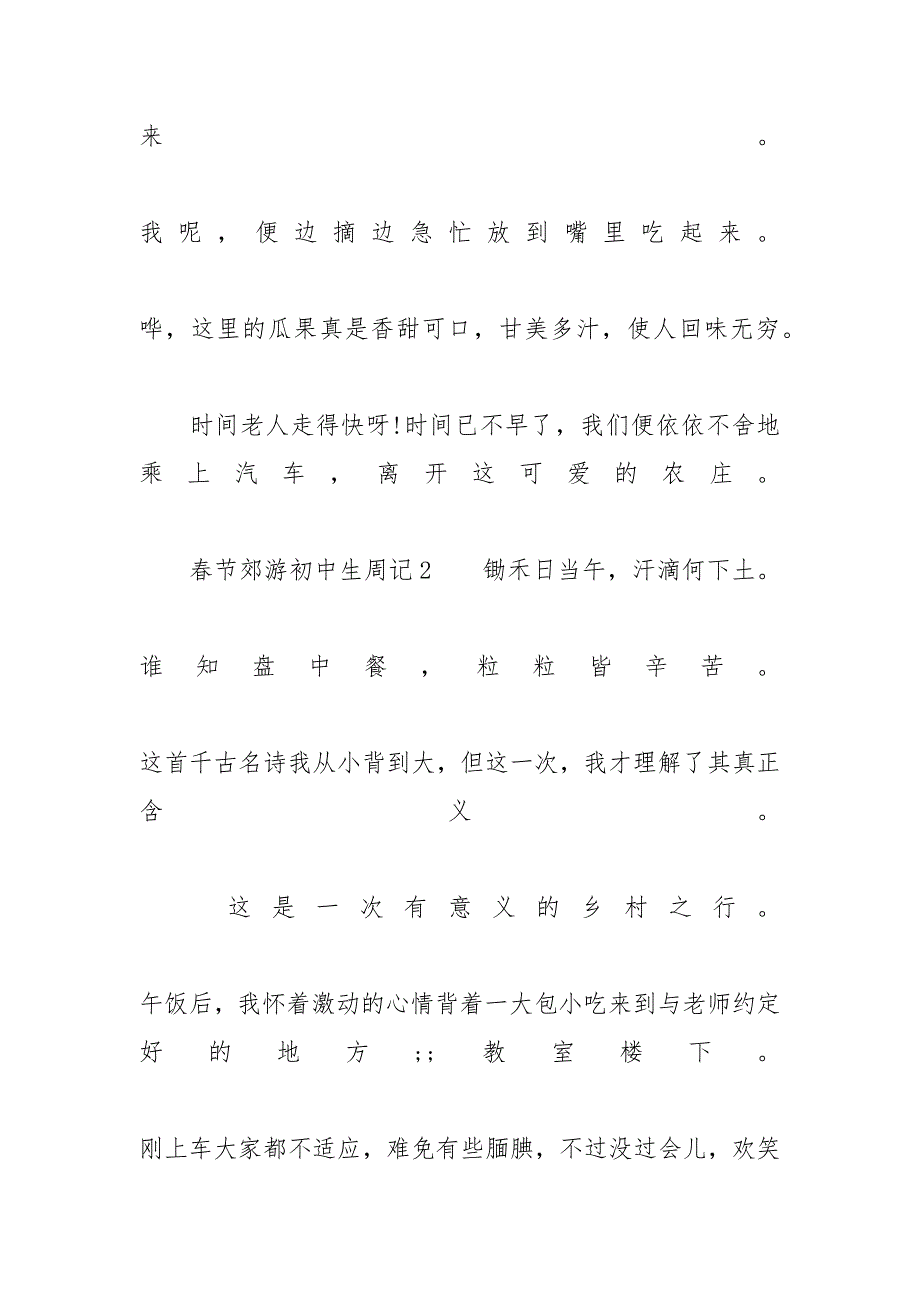 来。
我呢，便边摘边急忙放到嘴里吃起来。
哗，这里的瓜果真是香甜可口，甘美多汁，使人回味无穷。
时间老人走得快呀!时间已不早了，我们便依依不舍地
乘上汽车，离开这可爱的农庄。
春节郊游初中生周记2　　锄禾日当午，汗滴何下土。
谁知盘中餐，粒粒皆辛苦。
这首千古名诗我从小背到大，但这一次，我才理解了其真正
含义。
这是一次有意义的乡村之行。
午饭后，我怀着激动的心情背着一大包小吃来到与老师约定
好的地方;;教室楼下。
刚上车大家都不适应，难免有些腼腆，不过没过会儿，欢笑